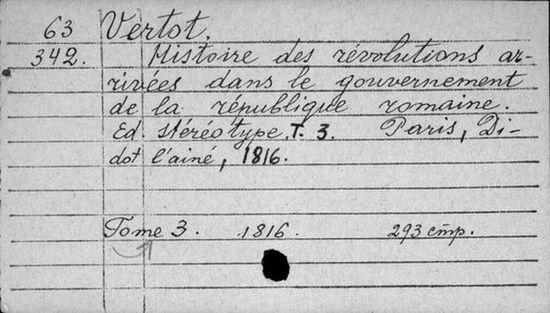 63 Vertot.
342. Histoire des révolutions ar-
rivées dans le gouvernement
de la république romaine.
Ed. stéréotype. T. 3. Paris, Di-
dot l'ainé, 1816.
Tome 3. 1816. 293 стр.